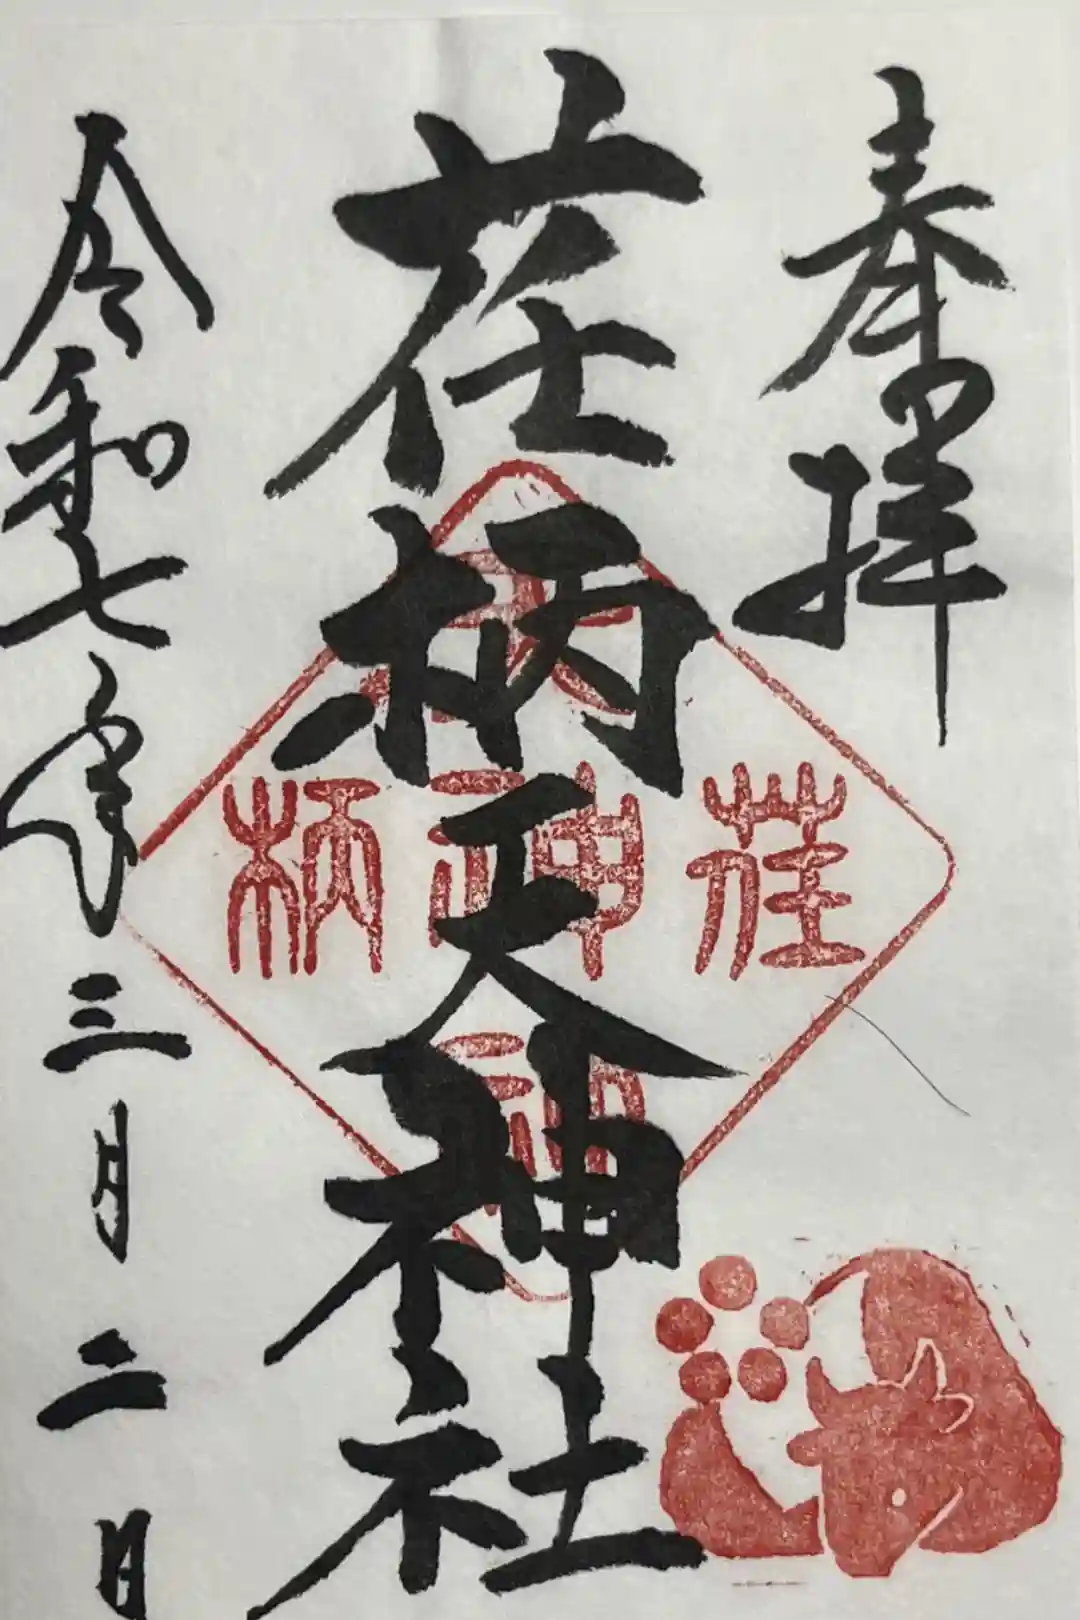 奉拝
荏柄天神社
荏柄天神社
令和七年三月二日